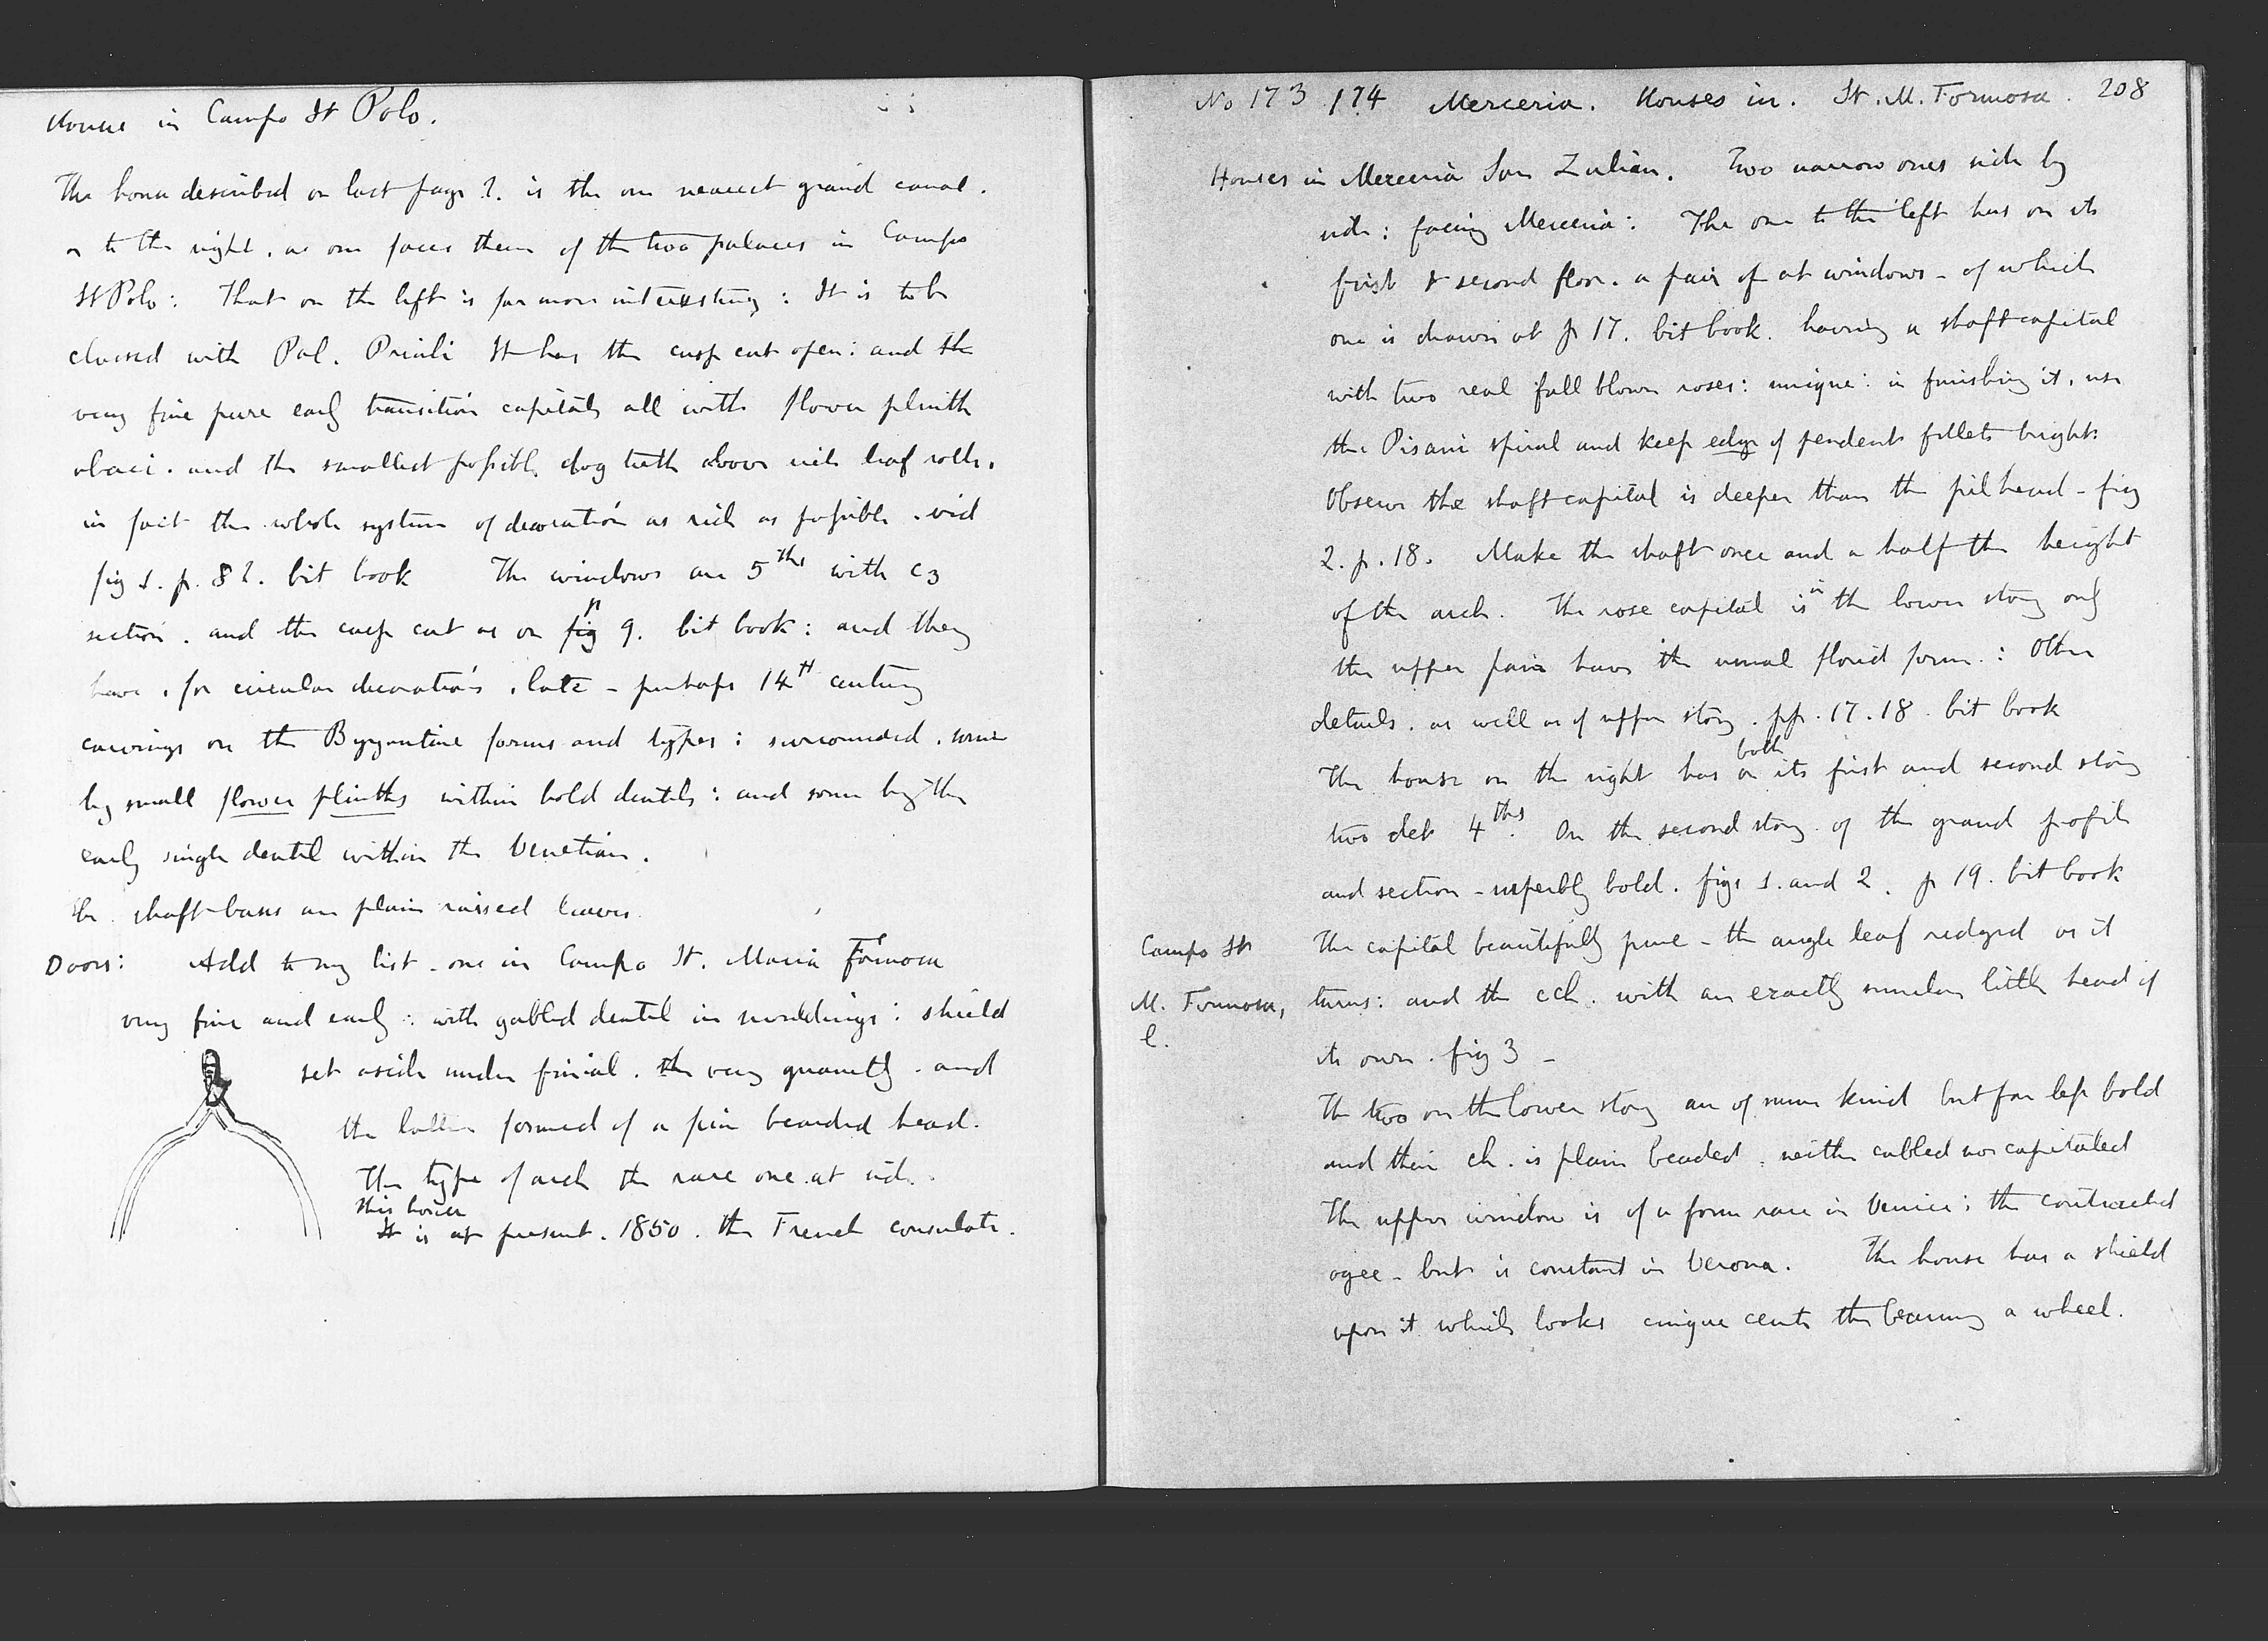 House in Campo St Polo.
The house described on last page 2. is the one nearest grand canal.
or to the right. as one faces them of the two palaces in Campo
St Polo: That on the left is far more interesting: It is to be
classed with Pal. Priuli It has the cusp cut open: and the
very fine pure early transition capitals all with flower plinth
abaci. and the smallest possible dog teeth above with leaf rolls.
in fact the whole system of decoration as rich as possible. vid
fig 1. p. 82. bit book The windows are 5ths with c3
section. and the cusp cut as on fig p 9. bit book: and they
have, for circular decorations, late - perhaps 14th century
carvings on the Byzantine forms and types: surrounded, some
by small flower plinths within bold dentils: and some by the
early single dentil within the Venetian.
The shaft bases are plain raised leaves.
Doors: Add to my list - one in Campo St. Maria Formosa
very fine and early: with gabled dentil in mouldings: shield
set aside under finial. the very quaintly. and
the latter formed of a fine bearded head.
The type of arch the rare one at side.
this house
It is at present. 1850. the French consulate.
No 173 174 Merceria. Houses in. St. M. Formosa. 208
Houses in Merceria San Zulian. Two narrow ones side by
side: facing Merceria: The one to the left has on its
first & second floor. a pair of at windows - of which
one is drawn at p 17. bit book. having a shaft capital
with two real full blown roses: unique: in finishing it, use
the Pisani spiral and keep edge of pendent fillets bright:
Observe the shaft capital is deeper than the pilhead - fig
2. p. 18. Make the shaft once and a half the height
of the arch. The rose capital is in the lower story only
the upper pair have the usual florid form.: Other
details. as well as of upper story. pp. 17. 18. bit book
The house on the right has both on its first and second story
two det 4ths. On the second story. of the grand profile
and section - superbly bold. figs 1. and 2. p 19. bit book
Campo St
M. Formosa,
l.
The capital beautifully pure - the angle leaf ridged as it
turns: and the cch. with an exactly similar little head of
its own. fig 3 -
The two on the lower story are of same kind but far less bold
and their ch. is plain beaded, neither cabled nor capitaled
The upper window is of a form rare in Venice: the contracted
ogee - but is constant in Verona. The house has a shield
upon it which looks cinque cento the bearing a wheel.